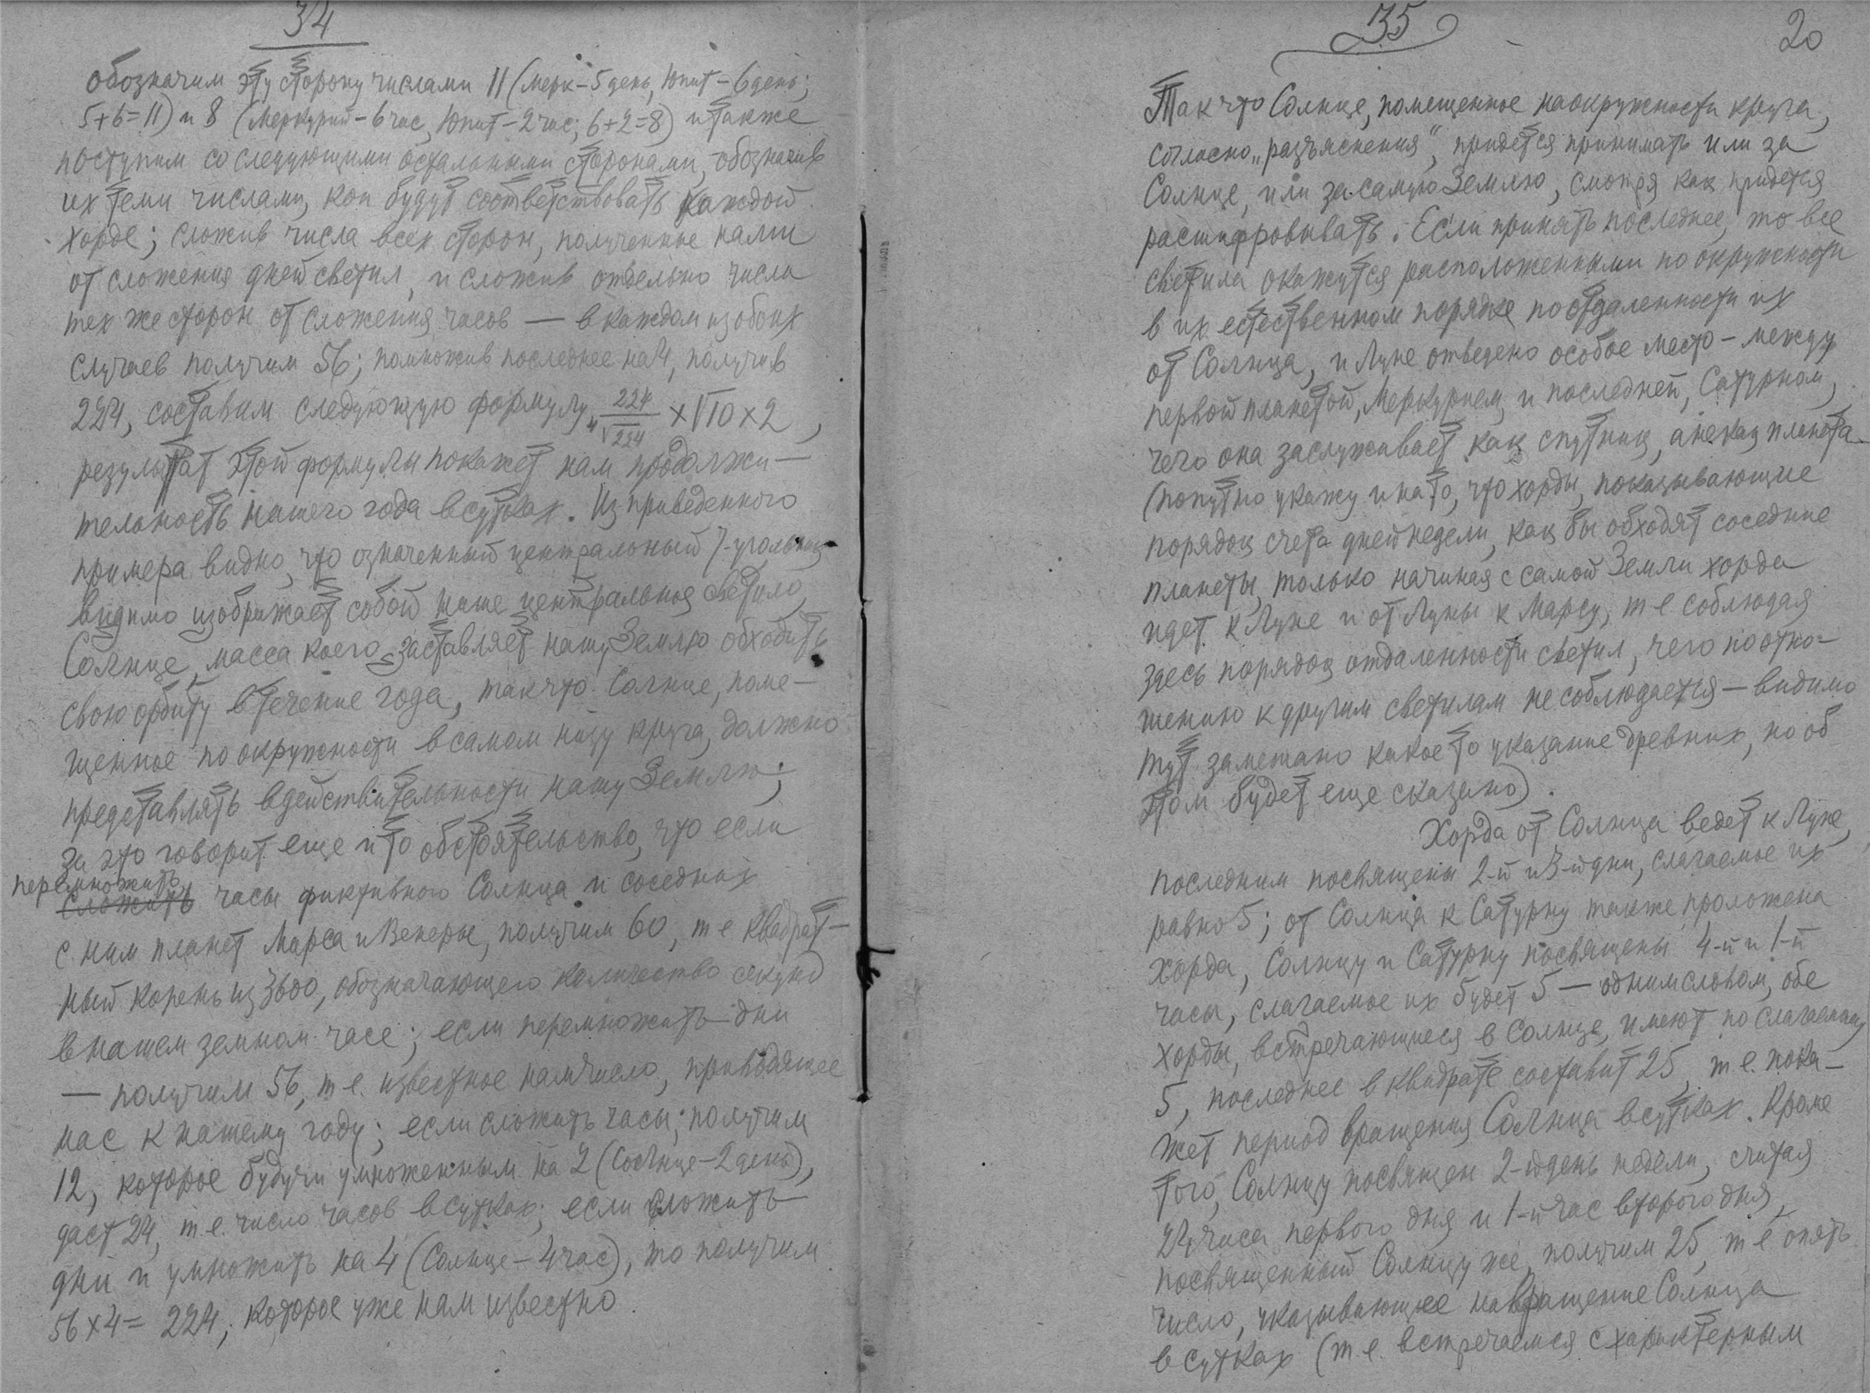 34
обозначим эту сторону числами 11 (Мерк – 5 день, Юпит – 6 день;
5+6=11) и 8 (Меркурий – 6 час, Юпит – 2 час; 6+2=8) и также
поступим со следующими остальными сторонами, обозначив
их теми числами, кои будут соответствовать каждой
хорде; сложив числа всех сторон, полученные нами
от сложения дней светил, и сложив отдельно числа
тех же сторон от сложения часов — в каждом из обоих
случаев получим 56; помножив последнее на 4, получив
224, составим следующую формулу 224/⁴√224 × √10 × 2,
результат этой формулы покажет нам продолжи–
тельность нашего года в сутках. Из приведенного
примера видно, что означенный центральный 7-угольник
видимо изображает собой наше центральное светило,
Солнце, масса коего заставляет нашу Землю обходить
свою орбиту в течение года, так что Солнце, поме–
щенное по окружности в самом низу круга, должно
представлять в действительности нашу Землю;
за это говорит еще и то обстоятельство, что если
перемножить
сложить часы фиктивного Солнца и соседних
с ним планет Марса и Венеры, получим 60, т е квадрат–
ный корень из 3600, обозначающего количество секунд
в нашем земном часе; если перемножить дни
— получим 56, т е. известное нам число, приводящее
нас к нашему году; если сложить часы; получим
12, которое будучи умноженным на 2 (Солнце – 2 день),
даст 24, т е. число часов в сутках; если сложить
дни и умножить на 4 (Солнце – 4 час), то получим
56 × 4 = 224, которое уже нам известно.
35
20
Так что Солнце, помещенное на окружности круга,
согласно „разъяснения“, придется принимать или за
Солнце, или за самую Землю, смотря как придется
расшифровывать. Если принять последнее, то все
светила окажутся расположенными по окружности
в их естественном порядке по отдаленности их
от Солнца, и Луне отведено особое место – между
первой планетой, Меркурием, и последней, Сатурном,
чего она заслуживает как спутник, а не как планета.
(попутно укажу и на то, что хорды, показывающие
порядок счета дней недели, как бы обходят соседние
планеты, только начиная с самой Земли хорда
идет к Луне и от Луны к Марсу, т е соблюдая
здесь порядок отдаленности светил, чего по отно–
шению к другим светилам не соблюдается – видимо
тут заметано какое то указание древних, но об
этом будет еще сказано).
Хорда от Солнца ведет к Луне,
последним посвящены 2-й и 3-й дни, слагаемое их
равно 5; от Солнца к Сатурну также проложена
хорда, Солнцу и Сатурну посвящены 4-й и 1-й
часы, слагаемое их будет 5 — одним словом, обе
хорды, встречающиеся в Солнце, имеют по слагаемому
5, последнее в квадрате составит 25, т е. пока–
жет период вращения Солнца в сутках. Кроме
того, Солнцу посвящен 2-й день недели, считая
24 часа первого дня и 1-й час второго дня,
посвященный Солнцу же, получим 25, т е опять
число, указывающее на вращение Солнца
в сутках (т е. встречаемся с характерным